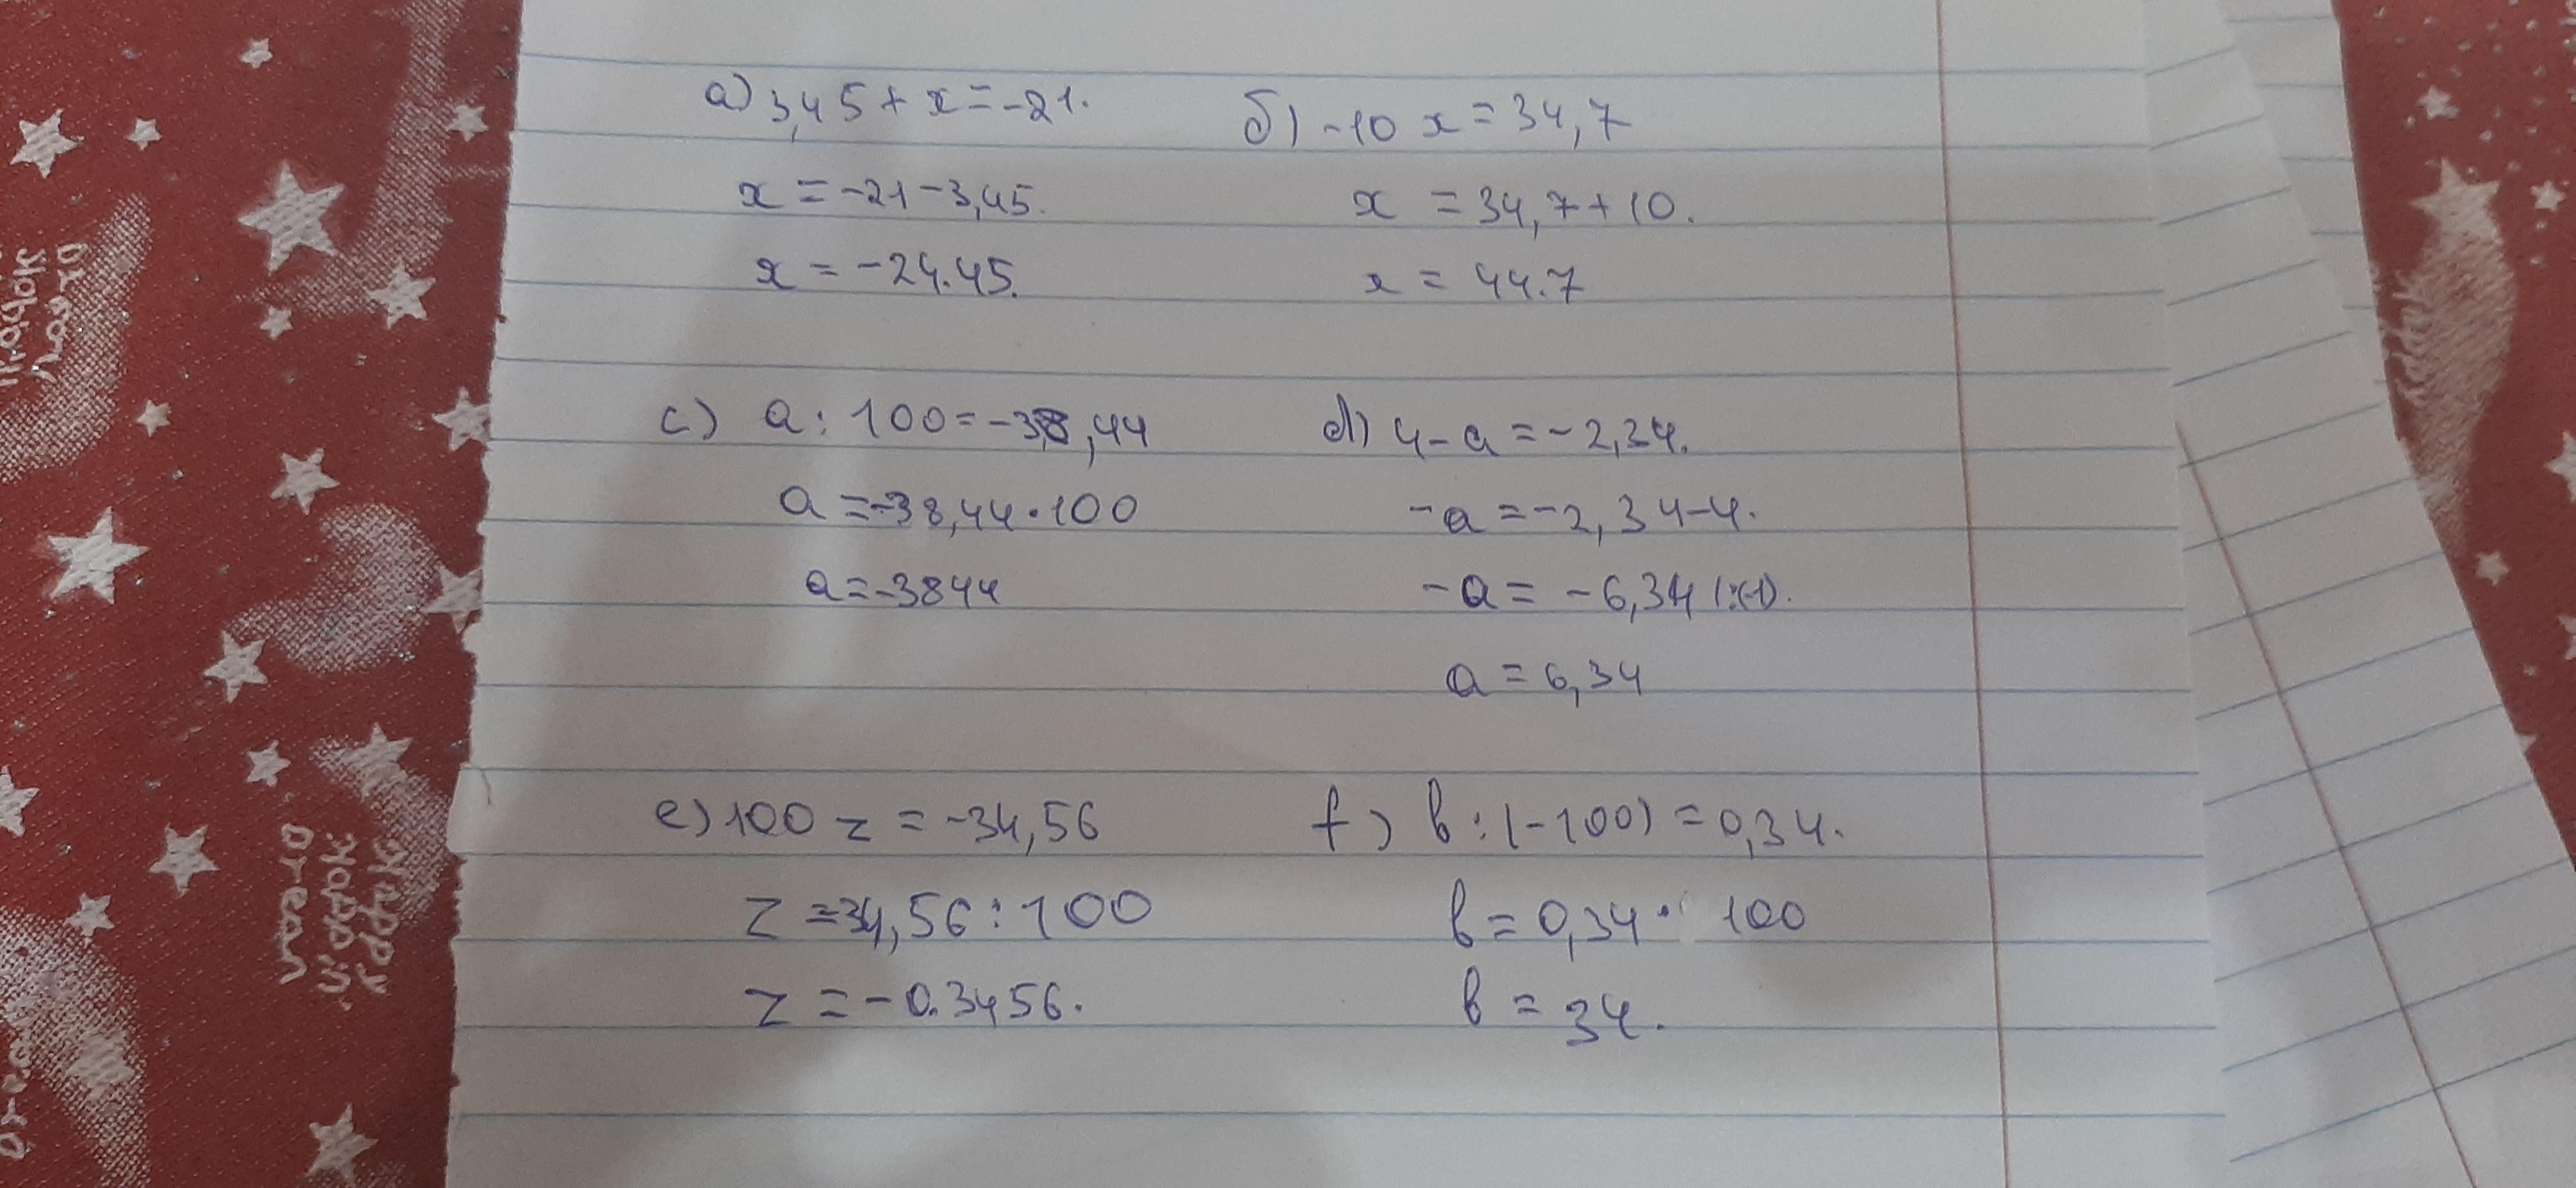 a) 3,45 + x = -21.
x = -21 - 3,45.
x = -24.45.
б) -10 x = 34,7
x = 34,7 + 10.
x = 44.7
c) a : 100 = -38,44
a = -38,44 · 100
a = -3844
d) 4 - a = -2,34.
-a = -2,34 - 4.
-a = -6,34 |:(-1).
a = 6,34
e) 100 z = -34,56
z = 34,56 : 100
z = -0.3456.
f) b : (-100) = 0,34.
b = 0,34 · 100
b = 34.